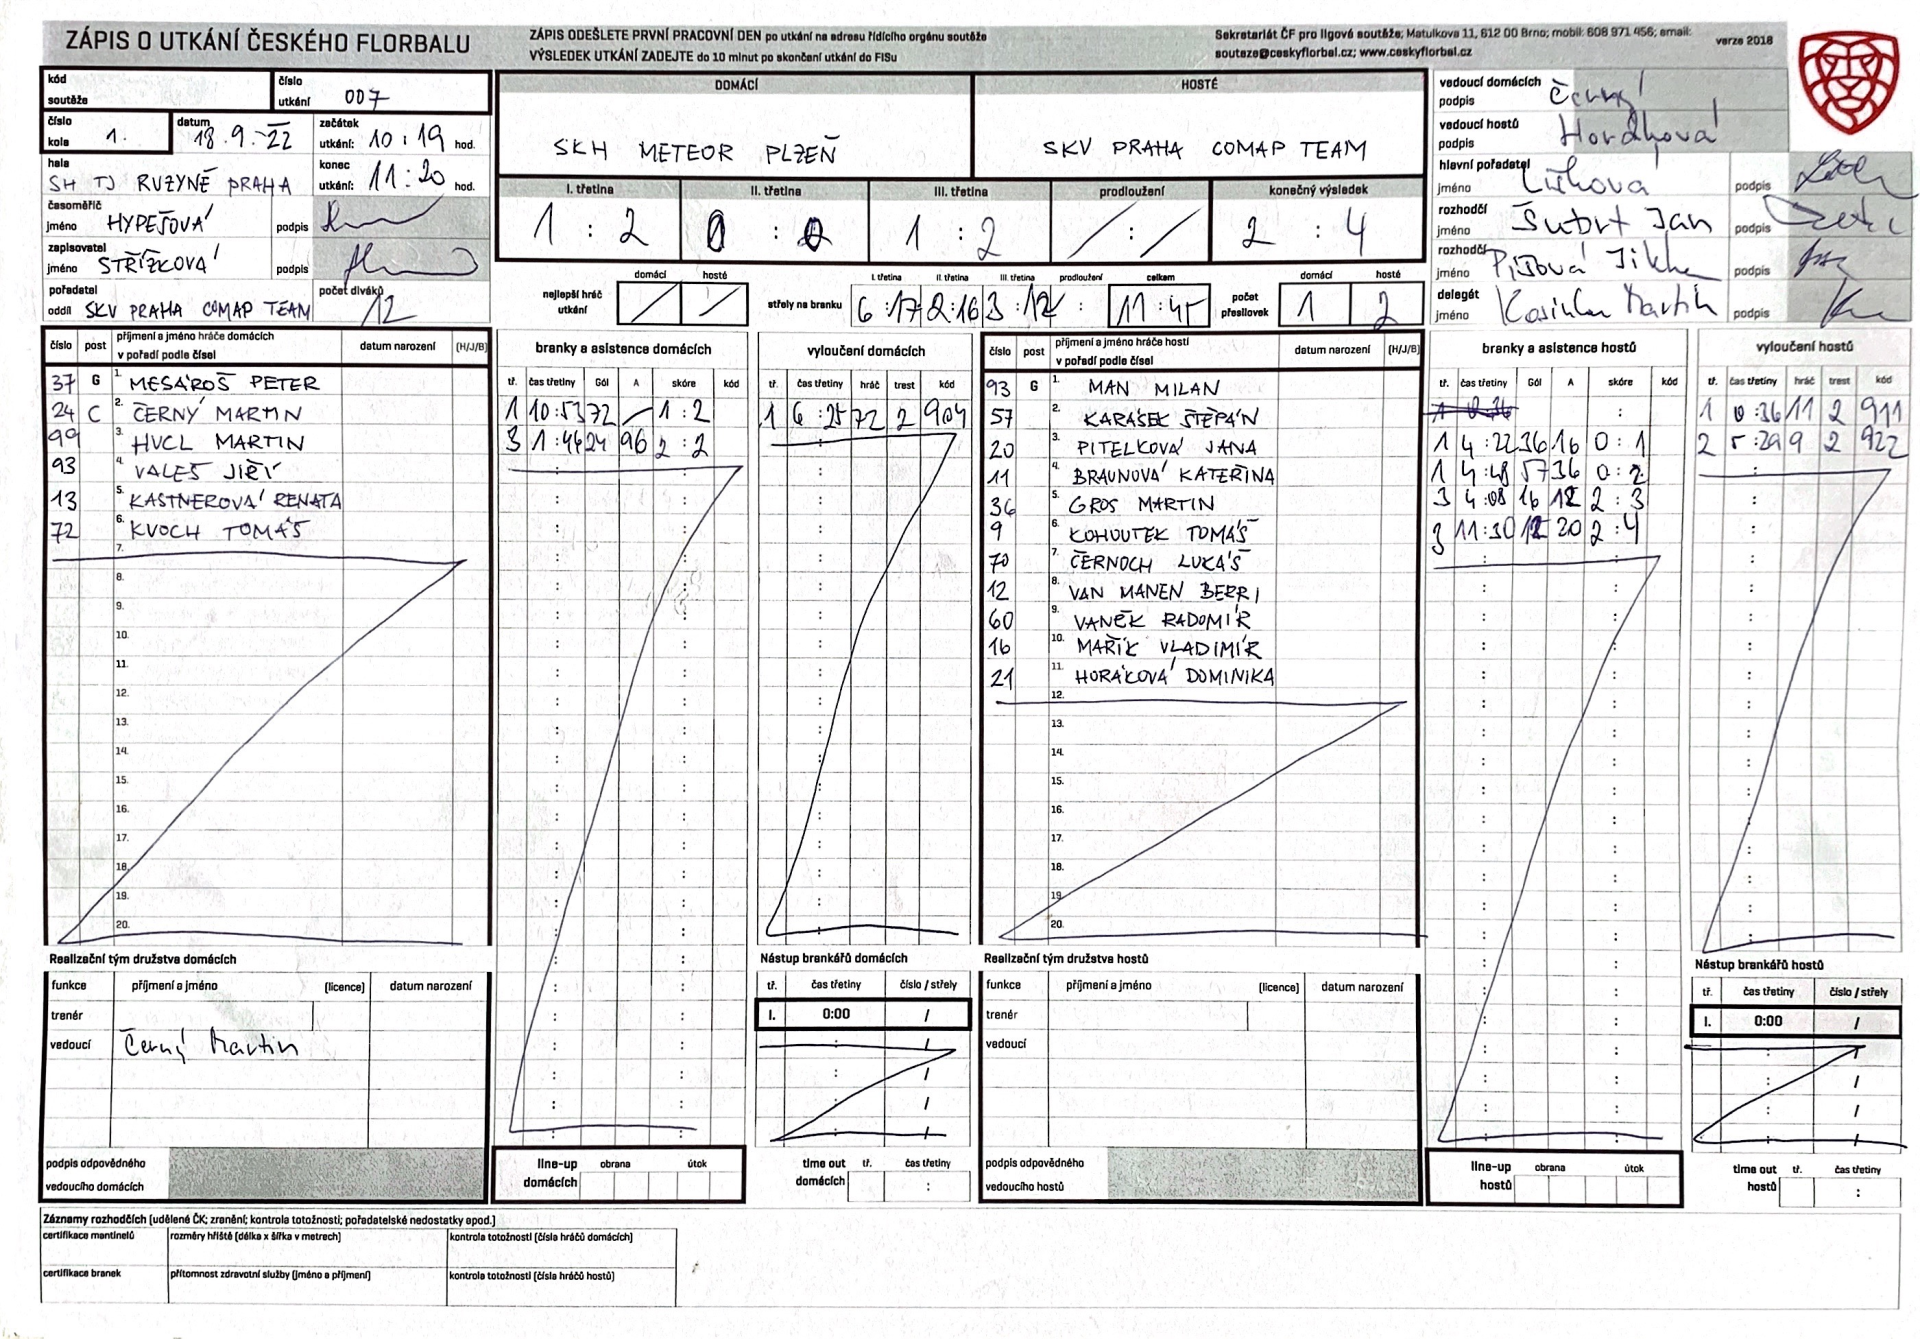 ZÁPIS O UTKÁNÍ ČESKÉHO FLORBALU
ZÁPIS ODEŠLETE PRVNÍ PRACOVNÍ DEN po utkání na adresu řídícího orgánu soutěže
VÝSLEDEK UTKÁNÍ ZADEJTE do 10 minut po skončení utkání do FISu
Sekretariát ČF pro ligové soutěže; Matulkova 11, 612 00 Brno; mobil: 608 971 456; email:
souteze@ceskyflorbal.cz; www.ceskyflorbal.cz
verze 2018
kód soutěže
číslo utkání 007
číslo kola 1.
datum 18.9.22
začátek utkání: 10:19 hod.
hala SH TJ RUZYNĚ PRAHA
konec utkání: 11:20 hod.
časoměřič jméno HYPEŠOVÁ podpis
zapisovatel jméno STŘÍŽKOVÁ podpis
pořadatel oddíl SKV PRAHA COMAP TEAM
počet diváků 12
DOMÁCÍ
SKH METEOR PLZEŇ
HOSTÉ
SKV PRAHA COMAP TEAM
I. třetina II. třetina III. třetina prodloužení konečný výsledek
1 : 2 0 : 0 1 : 2 / : / 2 : 4
nejlepší hráč utkání domácí / hosté /
střely na branku I. třetina II. třetina III. třetina prodloužení celkem
6 :17 2:16 3 :12 : 11 : 45
počet přesilovek domácí 1 hosté 2
vedoucí domácích podpis Černý
vedoucí hostů podpis Horáková
hlavní pořadatel jméno podpis
rozhodčí jméno Šubrt Jan podpis
rozhodčí jméno podpis
delegát jméno Martin podpis
číslo post příjmení a jméno hráče domácích v pořadí podle čísel datum narození (H/J/B)
37 G 1. MESÁROŠ PETER
24 C 2. ČERNÝ MARTIN
99 3. HUCL MARTIN
93 4. VALEŠ JIŘÍ
13 5. KASTNEROVÁ RENATA
72 6. KVOCH TOMÁŠ
7.
8.
9.
10.
11.
12.
13.
14.
15.
16.
17.
18.
19.
20.
branky a asistence domácích
tř. čas třetiny Gól A skóre kód
1 10:53 72 / 1 : 2
3 1:44 24 96 2 : 2
vyloučení domácích
tř. čas třetiny hráč trest kód
1 6 :25 72 2 904
číslo post příjmení a jméno hráče hostí v pořadí podle čísel datum narození (H/J/B)
93 G 1. MAN MILAN
57 2. KARÁSEK ŠTĚPÁN
20 3. PITELKOVÁ JANA
11 4. BRAUNOVÁ KATEŘINA
36 5. GROS MARTIN
9 6. KOHOUTEK TOMÁŠ
70 7. ČERNOCH LUKÁŠ
12 8. VAN MANEN BERRI
60 9. VANĚK RADOMÍR
16 10. MAŘÍK VLADIMÍR
21 11. HORÁKOVÁ DOMINIKA
12.
13.
14.
15.
16.
17.
18.
19.
20.
branky a asistence hostů
tř. čas třetiny Gól A skóre kód
1 4 :22 36 16 0 : 1
1 4:48 57 36 0 : 2
3 4:08 16 12 2 : 3
3 11:30 12 20 2 : 4
vyloučení hostů
tř. čas třetiny hráč trest kód
1 0 :36 11 2 911
2 5 :29 9 2 922
Realizační tým družstva domácích
funkce příjmení a jméno (licence) datum narození
trenér
vedoucí Černý Martin
podpis odpovědného vedoucího domácích
line-up domácích obrana útok
Nástup brankářů domácích
tř. čas třetiny číslo / střely
I. 0:00 /
time out domácích tř. čas třetiny :
Realizační tým družstva hostů
funkce příjmení a jméno (licence) datum narození
trenér
vedoucí
podpis odpovědného vedoucího hostů
line-up hostů obrana útok
Nástup brankářů hostů
tř. čas třetiny číslo / střely
I. 0:00 /
time out hostů tř. čas třetiny :
Záznamy rozhodčích (udělené ČK; zranění; kontrola totožnosti; pořadatelské nedostatky apod.)
certifikace mantinelů rozměry hřiště (délka x šířka v metrech) kontrola totožnosti (čísla hráčů domácích)
certifikace branek přítomnost zdravotní služby (jméno a příjmení) kontrola totožnosti (čísla hráčů hostů)